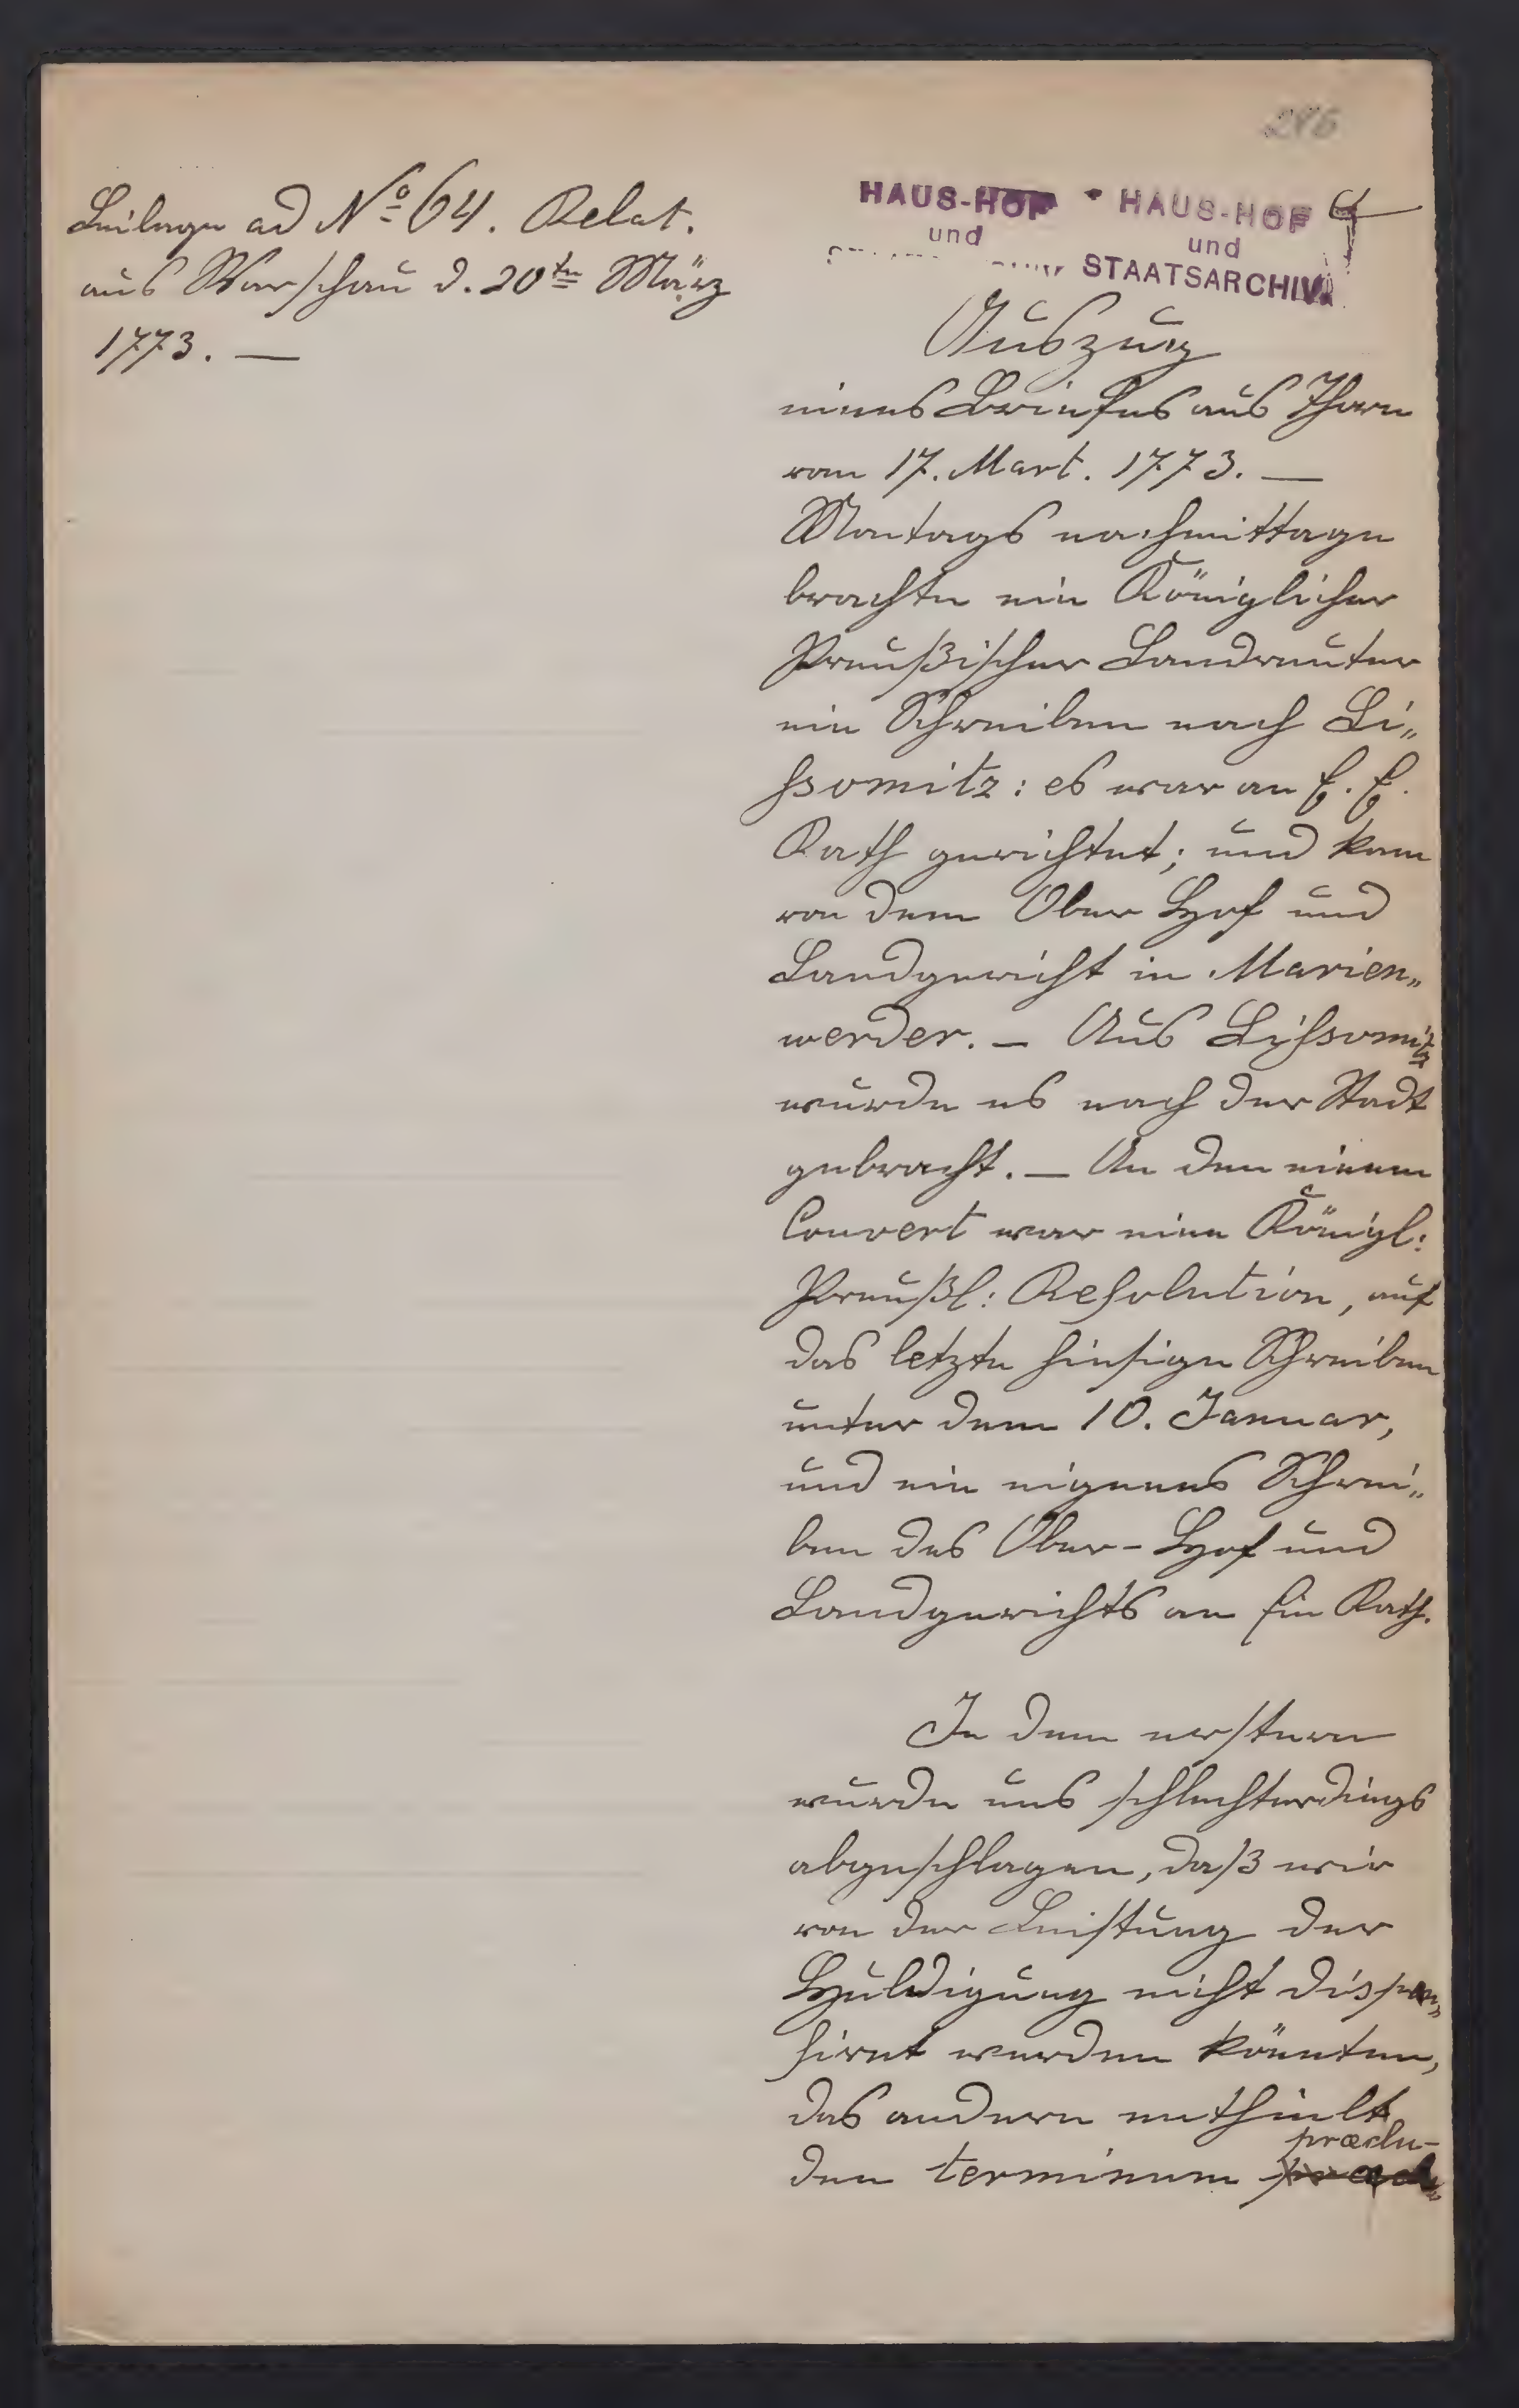 286
Beilage ad Nº 64. Relat.
aus Warschau d. 20ten März
1773. —
HAUS-HOF HAUS-HOF
und und
STAATSARCHIV
Auszug
eines Briefes aus Thorn
vom 17. Mart. 1773. —
Montags nachmittage
brachte ein Königlicher
Preußischer Landreuter
ein Schreiben nach Li„
ssomitz: es war an E. E.
Rath gerichtet; und kam
von dem Ober Hof und
Landgericht in Marien„
werder. — Aus Lissomitz
wurde es nach der Stadt
gebracht. — An dem einem
Couvert war eine Königl:
Preußl: Resolution, auf
das letzte hiesige Schreiben
unter dem 10. Januar,
und ein eigenes Schrei„
ben des Ober-Hof und
Landgerichts an Ein Rath.
In dem erstern
wurde uns schlechterdings
abgeschlagen, daß wir
von der Leistung der
Huldigung nicht dispen„
siret werden könnten,
das andere enthielt
praeclu-
den terminum